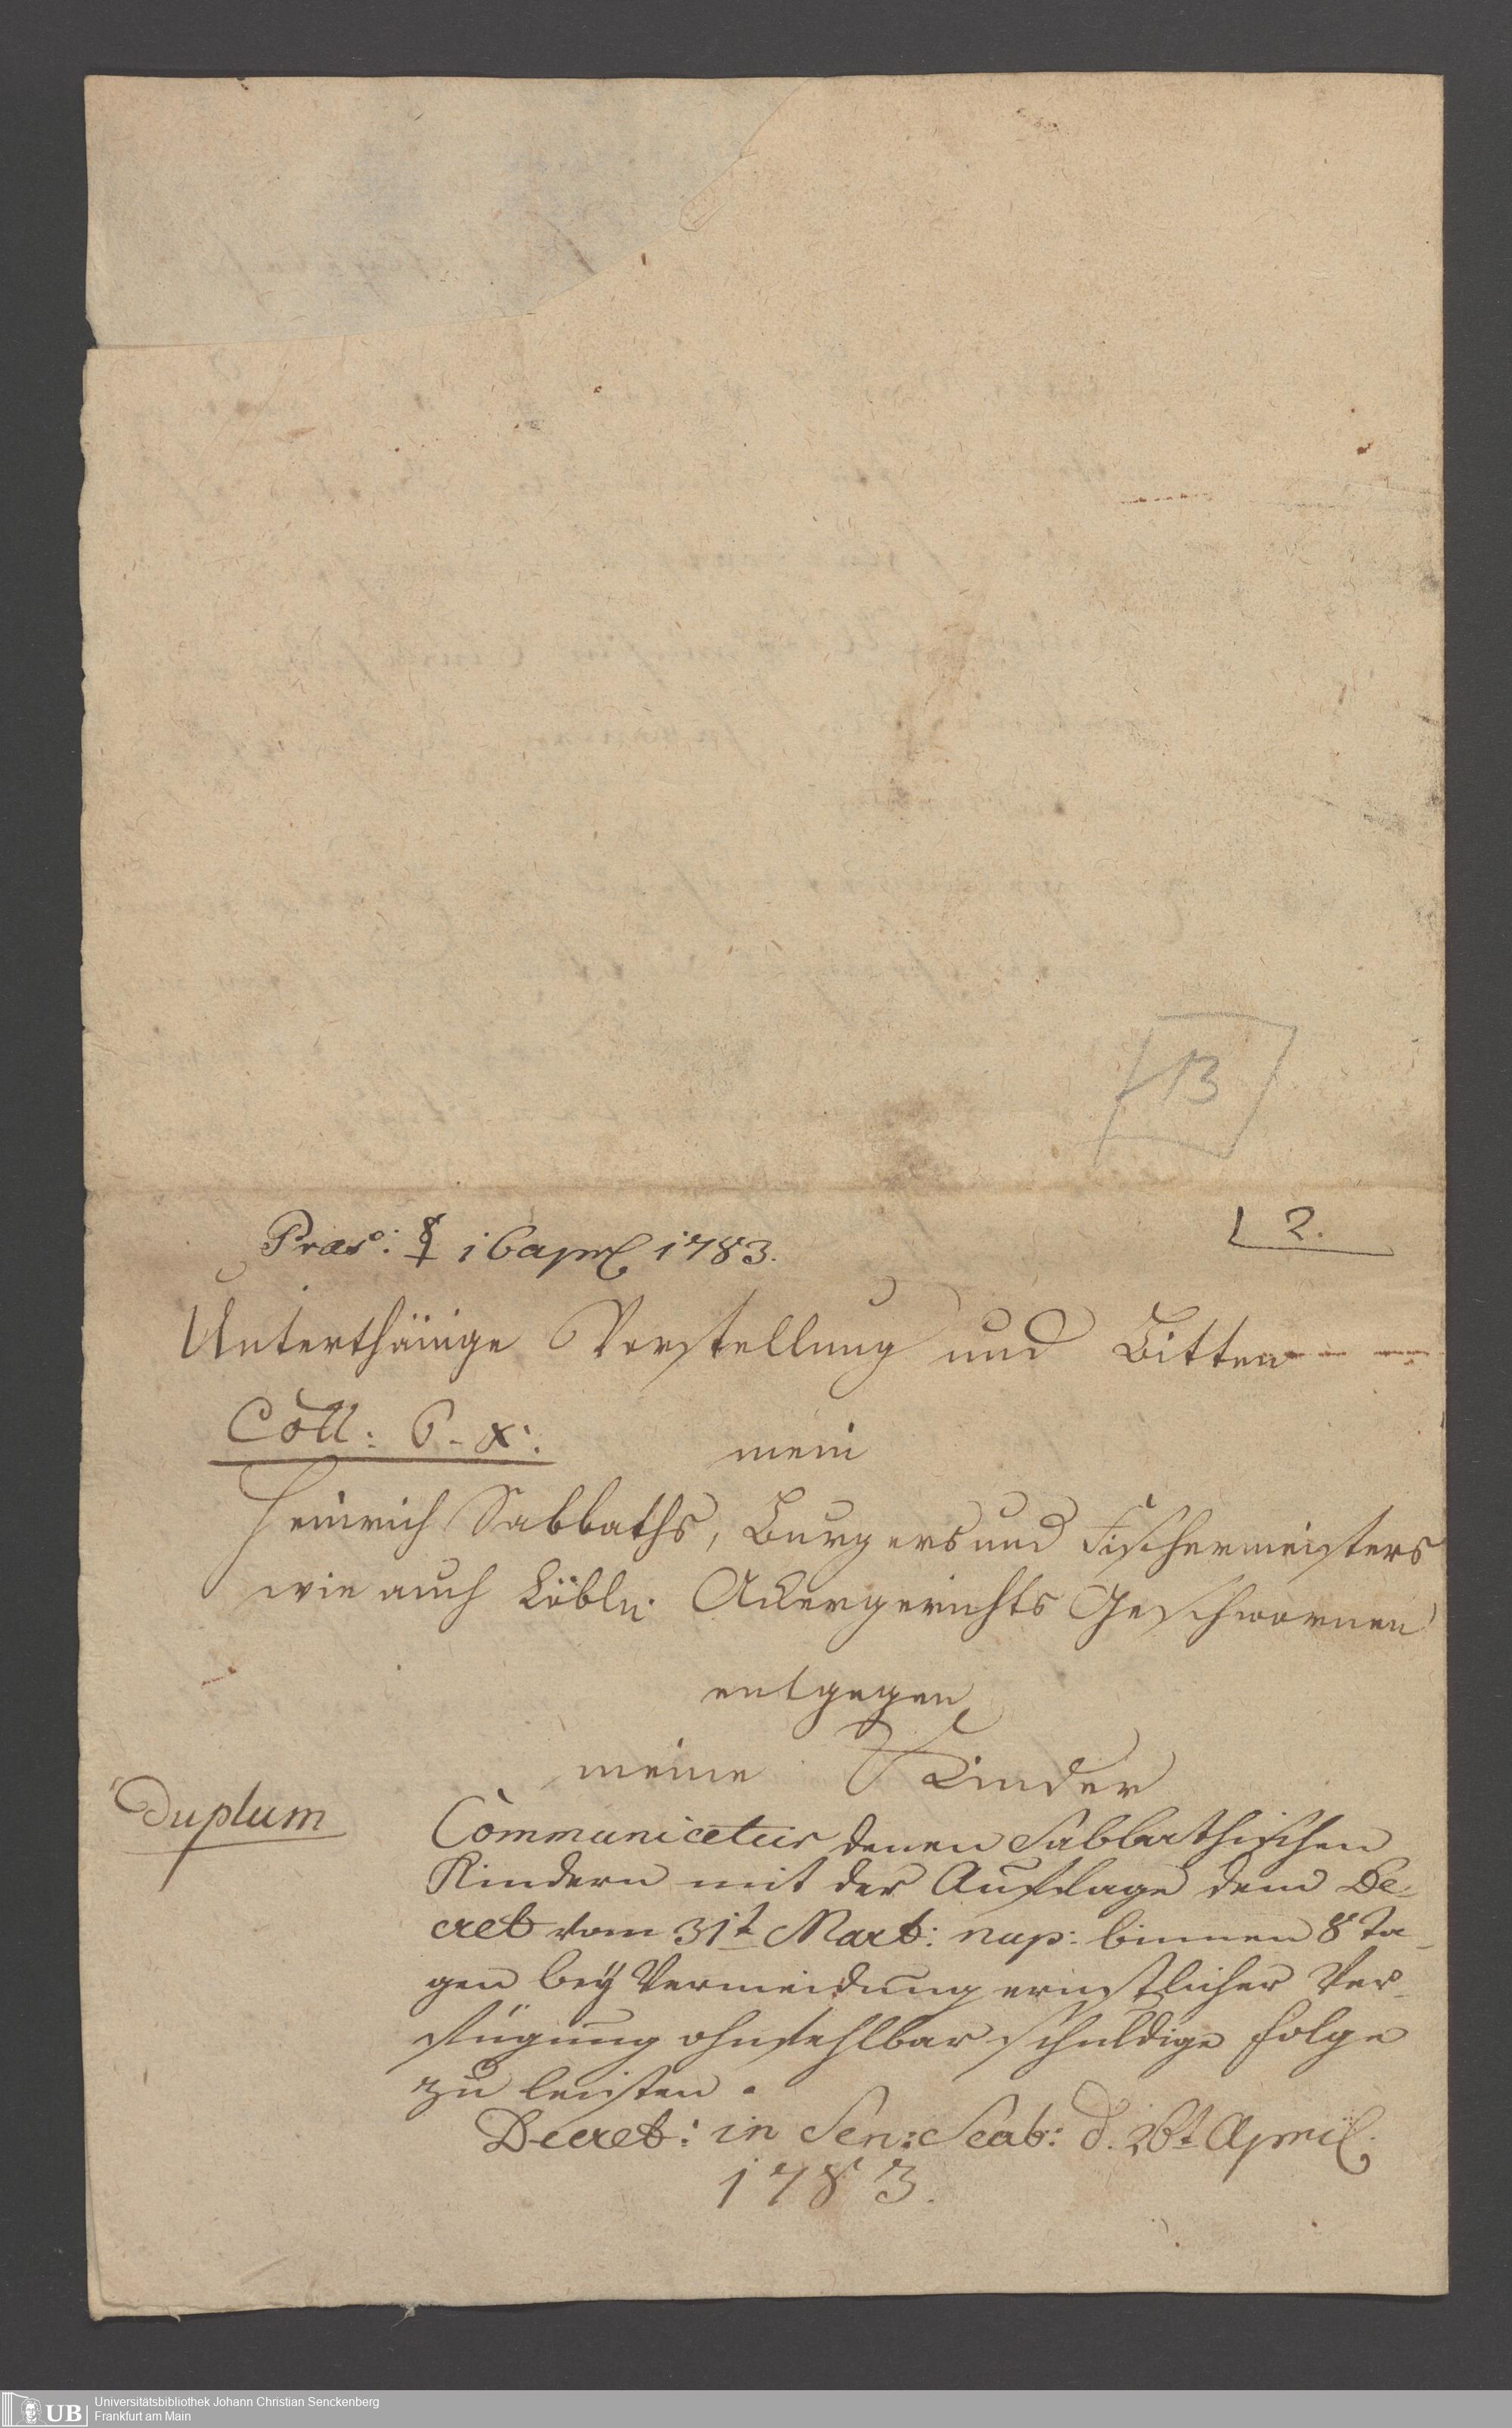 13
2.
Præs: ☿ 16 April 1783.
Unterthänige Vorstellung und Bitten
Coll: P. X.
mein
Heinrich Sabbaths, Burgers und Fischermeisters
wie auch Löbln. Ackergerichts Geschwornen
entgegen
meine Kinder
Duplum
Communicetur denen Sabbathischen
Kindern mit der Auflage dem De-
cret vom 31t Mart: nup: binnen 8 Ta-
gen beÿ Vermeidung ernstlicher Ver-
fügung ohnfehlbar schuldige folge
zu leisten.
Decret: in Sen: Scab: d. 26t April
1783.
UB
Universitätsbibliothek Johann Christian Senckenberg
Frankfurt am Main